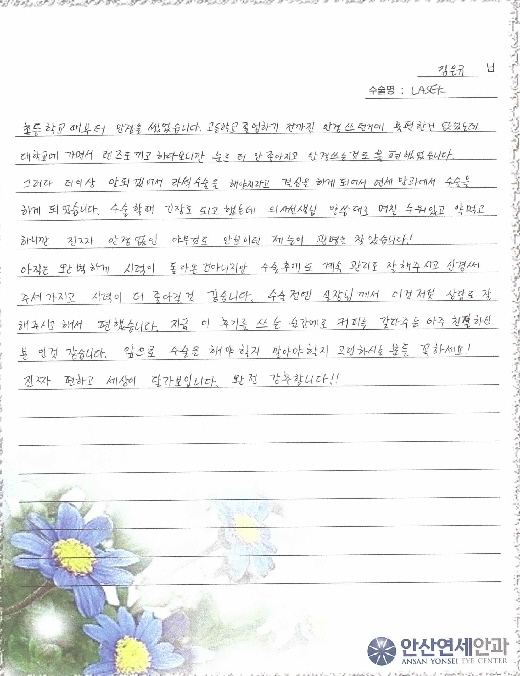 김은규 님
수술명 : LASEK
초등학교때부터 안경을 썼었습니다. 고등학교 졸업하기 전까진 안경 쓰던거에 불편함은 없었는데
대학교에 가면서 렌즈도 끼고 하다보니간 눈은 더 안 좋아지고 안경쓰는것도 불편했었습니다.
그러다 더이상 안되겠어서 라섹수술을 해야지라고 결심은 하게 되어서 연세안과에서 수술을
하게 되었습니다. 수술할때 긴장도 되고 했는데 의사선생님 말씀대로 누워있고
하니깐 진짜 안경없인 안보이던 제 눈이 잘 보였습니다!
아직은 완벽하게 시력이 돌아온건아니지만 수술후에도 계속 관리도 잘해주시고 신경써
주셔가지고 시력이 더 좋아질것 같습니다. 수술전엔 실장님께서 이것저것 상담도 잘
해주시고해서 편했습니다. 지금 이 후기를 쓰는 순간에도 커피를 갖다주는 아주 친절하신
분 인것 같습니다. 앞으로 수술을 해야할지 말아야할지 고민하시는분들 꼭하세요!
진짜 편하고 세상이 달라보입니다. 완전 강추합니다!!
안산연세안과
ANSAN YONSEI EYE CENTER